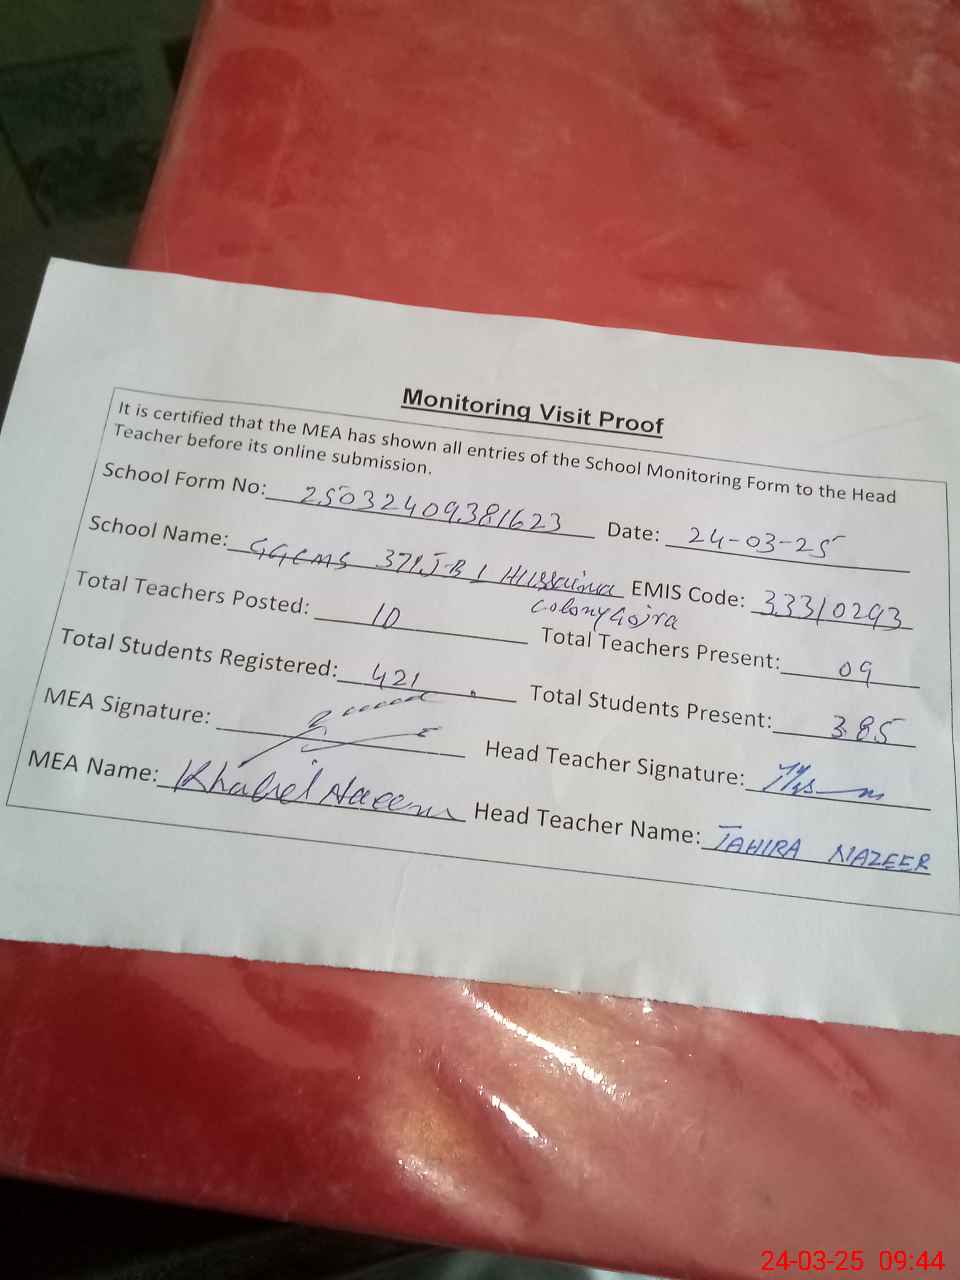 Monitoring Visit Proof
It is certified that the MEA has shown all entries of the School Monitoring Form to the Head
Teacher before its online submission.
School Form No: 25032409381623 Date: 24-03-25
School Name: GGCMS 371 J-B 1 Hussainia EMIS Code: 33310293
Colony Gojra
Total Teachers Posted: 10 Total Teachers Present: 09
Total Students Registered: 421 Total Students Present: 385
MEA Signature: Head Teacher Signature:
MEA Name: Naeem Head Teacher Name: TAHIRA NAZEER
24-03-25 09:44